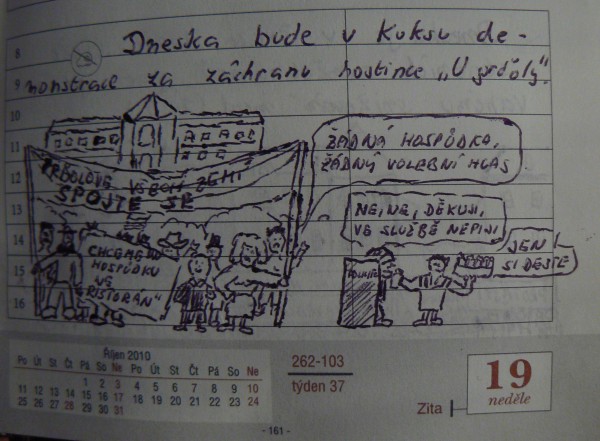 Dneska bude v Kuksu de-
8
9 monstrace za záchranu hostince „U prďoly".
10
11
12
13
14
15
16
ŽÁDNÁ HOSPŮDKA,
ŽÁDNÝ VOLEBNÍ HLAS
PRĎOLOVÉ VŠECH ZEMÍ
SPOJTE SE
NE, NE, DĚKUJI,
VE SLUŽBĚ NEPIJI
JEN
SI DEJTE
CHCEME
HOSPŮDKU
NE
„RISTORÁN"
POLICIE
Říjen 2010
Po Út St Čt Pá So Ne Po Út St Čt Pá So Ne
1 2 3 4 5 6 7 8 9 10
11 12 13 14 15 16 17 18 19 20 21 22 23 24
25 26 27 28 29 30 31
262-103
týden 37
Zita
19
neděle
- 161 -